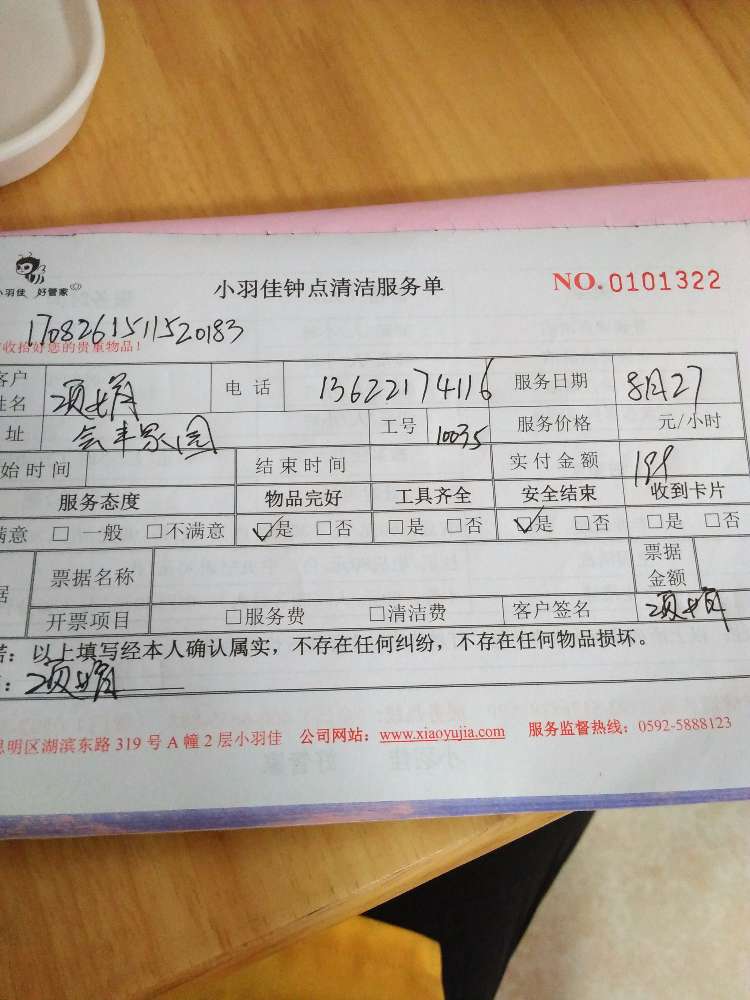 小羽佳 好管家
小羽佳钟点清洁服务单 NO.0101322
1708261511520183
收拾好您的贵重物品!
客户姓名 项娟 电话 13622174116 服务日期 8月27
址 会丰家园 工号 10035 服务价格 元/小时
始时间 结束时间 实付金额 199
服务态度 物品完好 工具齐全 安全结束 收到卡片
满意 □ 一般 □不满意 ☑是 □否 □是 □否 ☑是 □否 □是 □否
据 票据名称 票据金额
开票项目 □服务费 □清洁费 客户签名 项娟
诺:以上填写经本人确认属实,不存在任何纠纷,不存在任何物品损坏。
:项娟
思明区湖滨东路 319 号 A 幢 2 层小羽佳 公司网站:www.xiaoyujia.com 服务监督热线:0592-5888123